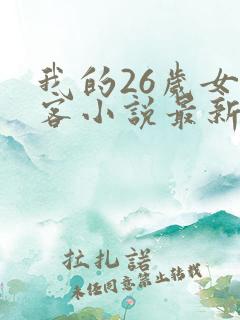 我的26歲女
客小說最新
拉扎諾
未经同意禁止转载